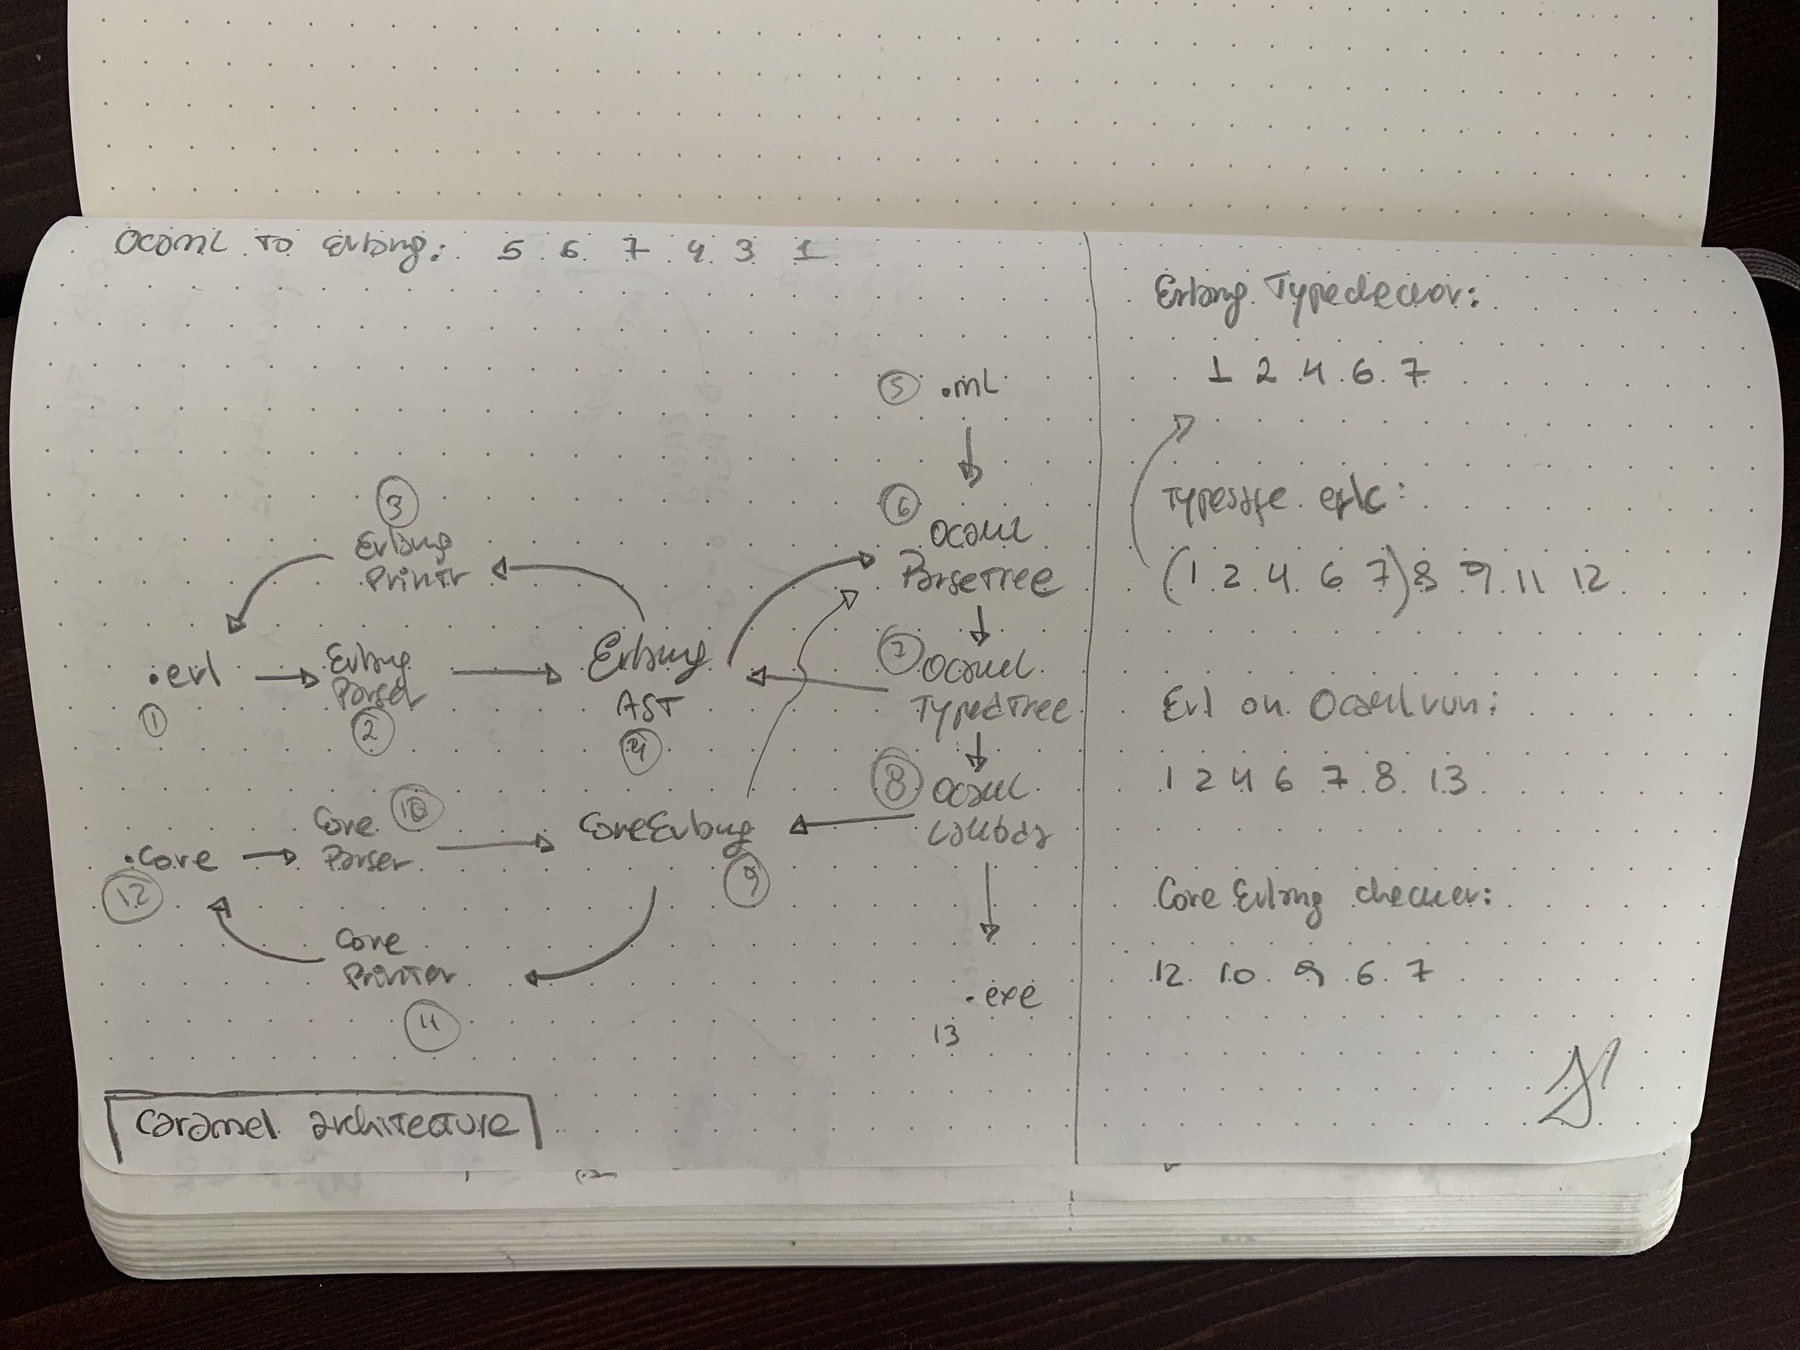 OCaml to Erlang: 5 6 7 4 3 1
5 .ml
3
Erlang
Printr
6
OCaml
ParseTree
.erl
1
Erlang
Parser
2
Erlang
AST
4
7 OCaml
TypedTree
8 OCaml
Lambda
.core
12
Core 10
Parser
CoreErlang
9
Core
Printer
11
.exe
13
Caramel architecture
Erlang Typechecker:
1 2 4 6 7
Typesafe erlc:
(1 2 4 6 7) 8 9 11 12
Erl on OCamlrun:
1 2 4 6 7 8 13
Core Erlang checker:
12 10 9 6 7